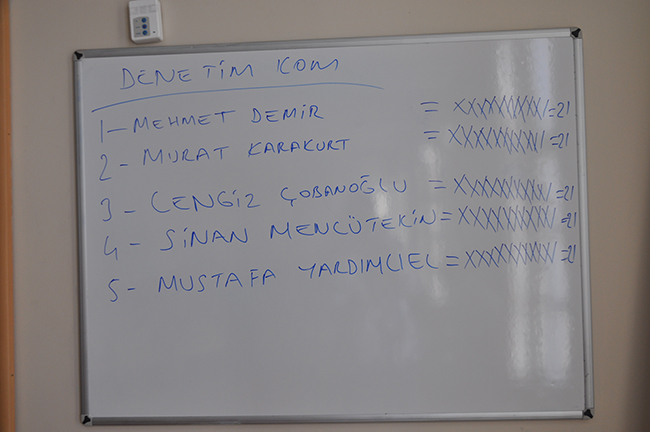 DENETİM KOM
1- MEHMET DEMİR = XXXXXXXXXX/=21
2- MURAT KARAKURT = XXXXXXXXXX/=21
3- CENGİZ ÇOBANOĞLU = XXXXXXXXXX/=21
4- SİNAN MENCÜTEKİN = XXXXXXXXXX/=21
5- MUSTAFA YARDIMCIEL = XXXXXXXXXX/=21